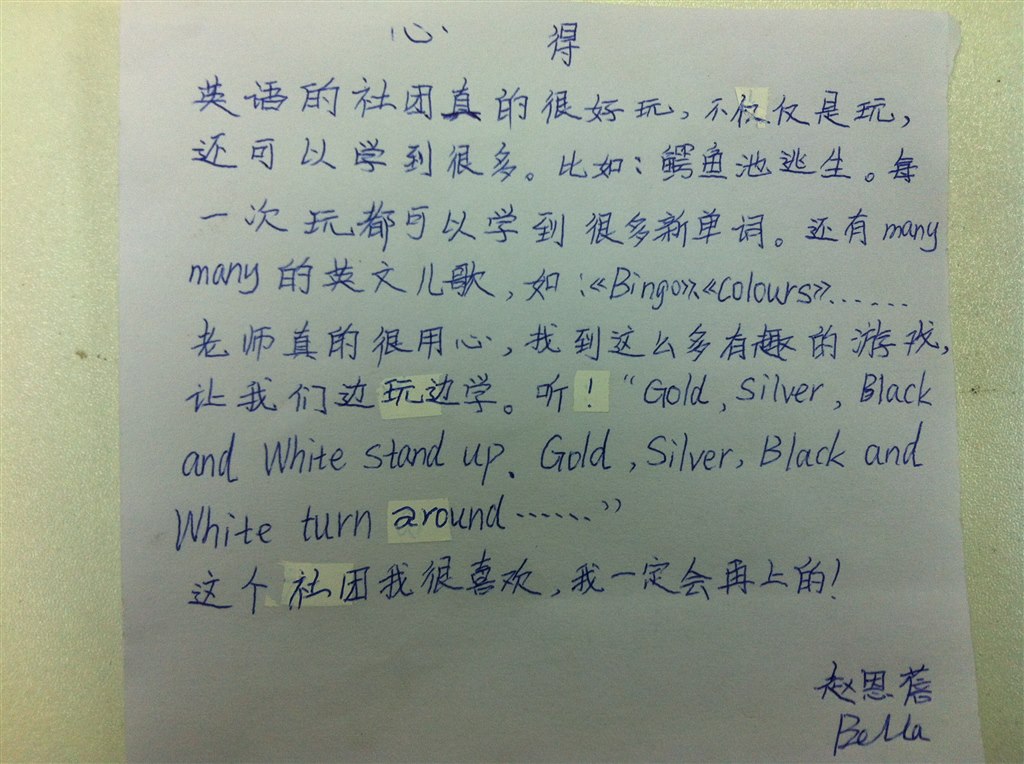 心 得
英语的社团真的很好玩，不仅仅是玩，
还可以学到很多。比如：鳄鱼池逃生。每
一次玩都可以学到很多新单词。还有many
many的英文儿歌，如：《Bingo》、《Colours》……
老师真的很用心，找到这么多有趣的游戏，
让我们边玩边学。听！“Gold, Silver, Black
and White stand up. Gold, Silver, Black and
White turn around……”
这个社团我很喜欢，我一定会再上的！
赵恩蓓
Bella